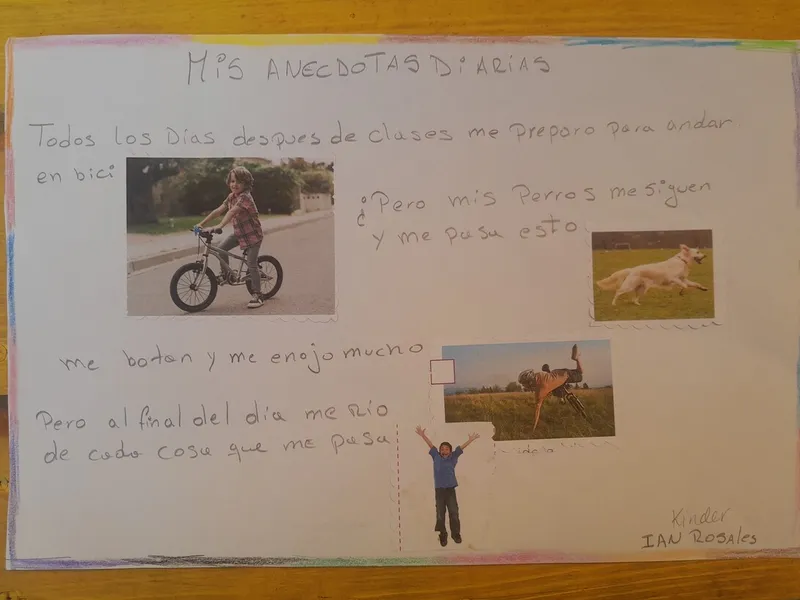 MIS ANECDOTAS DIARIAS
Todos los Dias despues de clases me preparo para andar
en bici
¿Pero mis Perros me siguen
y me pasa esto
me botan y me enojo mucho
Pero al final del dia me Rio
de cada cosa que me pasa
Kinder
IAN ROSAles